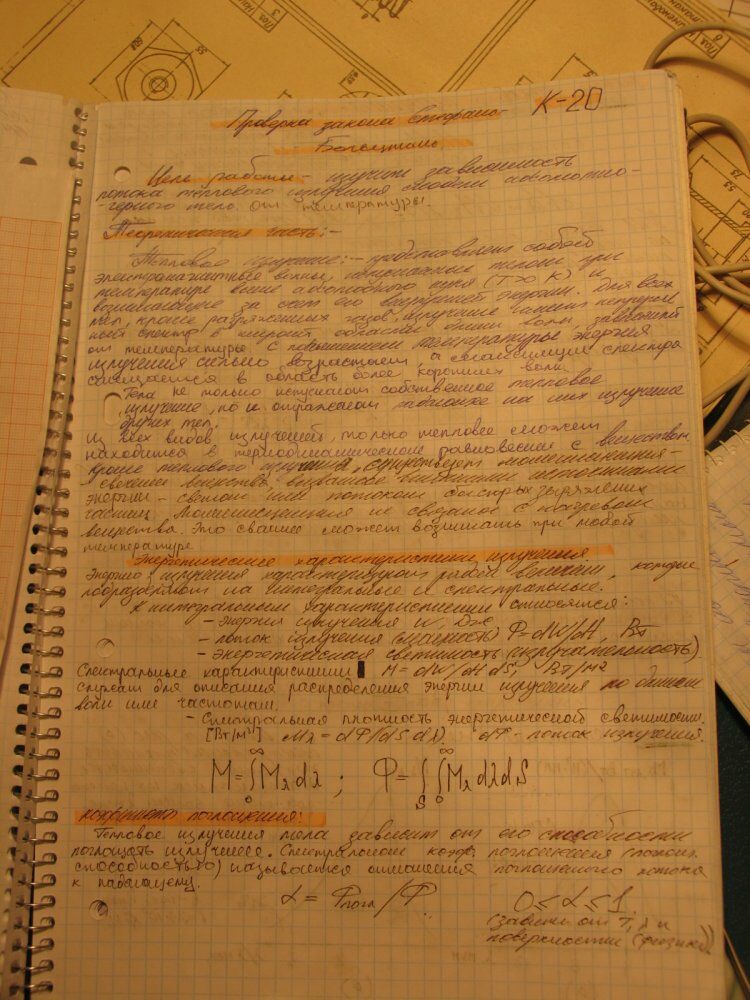 К-20
Проверка закона Стефано-
Больцмана
Цель работы - изучить зависимость
потока теплового излучения модели абсолютно-
-черного тела от температуры.
Теоретическая часть:-
Тепловое излучение:- представляет собой
электромагнитные волны, испускаемые телом при
температуре выше абсолютного нуля (T>0 K) и
возникающее за счет его внутренней энергии. Для всех
тел, кроме разряженных газов излучение имеет непрерыв
ный спектр в широкой области длин волн, зависящий
от температуры. С повышением температуры энергия
излучения сильно возрастает, а спектра
смещается в область более коротких волн.
Тела не только испускают собственное тепловое
излучение, но и отражают падающее на них излучение
других тел.
Из всех видов излучений, только тепловое может
находится в термодинамическом равновесии с веществом,
кроме теплового излучения, существует люминисценция-
свечение вещества, вызванное внешними источниками
энергии - светом или потоком быстрых заряжених
частиц. Люминисценция не связаное с нагревом
вещества. Это свание может возникать при любой
температуре
Энергетические характеристики излучения
Энергию излучения характеризуют рядом величин, которые
подразделяют на интегральные и спектральные.
К интегральным характеристикам относятся:
- энергия излучения W, Дж
- поток излучения (мощность) P=dW/dt, Вт
- энергетическая светимость (излучательность)
Спектральные характиристики M=dW/dt dS, Вт/м²
служат для описания распределения энергии излучения по длинам
волн или частотам.
- Спектральная плотность энергетической светимости.
[Вт/м³] Mλ = dФ/dS dλ. dФ - поток излучения.
M=∫₀^∞ Mλ dλ ; Ф=∫_S ∫₀^∞ Mλ dλ dS
поглощения:
Тепловое излучения тела зависит от его способности
поглощать излучение. Спектральном коэф. поглощения (поглощ.
способностью) называется отношения поглощеного потока
к падающему.
α = Фпогл/Ф 0≤α≤1
(зависит от T, λ и
поверхности (физики))